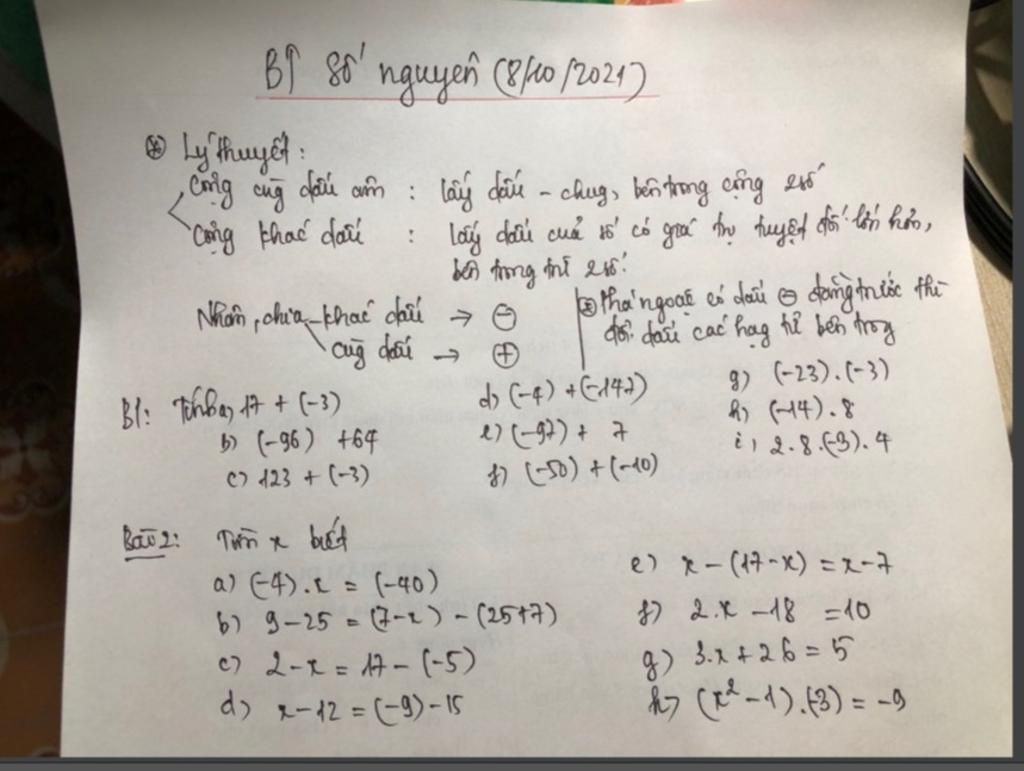 BT số nguyên (8/10/2021)
⊛ Lý thuyết:
Cộng cùg dấu âm : lấy dấu - chug, bên trong cộng 2 số
Cộng khác dấu : lấy dấu của số có giá trị tuyệt đối lớn hơn,
bên trong trừ 2 số.
Nhân, chia - khác dấu → ⊖
cùg dấu → ⊕
⊛ Phá ngoặc có dấu ⊖ đằng trước thì
đổi dấu các hạg tử bên trog
B1: Tính a, 17 + (-3)
b) (-96) + 64
c) 123 + (-3)
d) (-4) + (-147)
e) (-97) + 7
f) (-50) + (-10)
g) (-23).(-3)
h) (-14).8
i) 2.8.(-3).4
Bài 2: Tìm x biết
a) (-4).x = (-40)
b) 9-25 = (7-x) - (25+7)
c) 2-x = 17 - (-5)
d) x-12 = (-9)-15
e) x-(17-x) = x-7
f) 2.x -18 = 10
g) 3.x + 26 = 5
h) (x² - 1).(-3) = -9